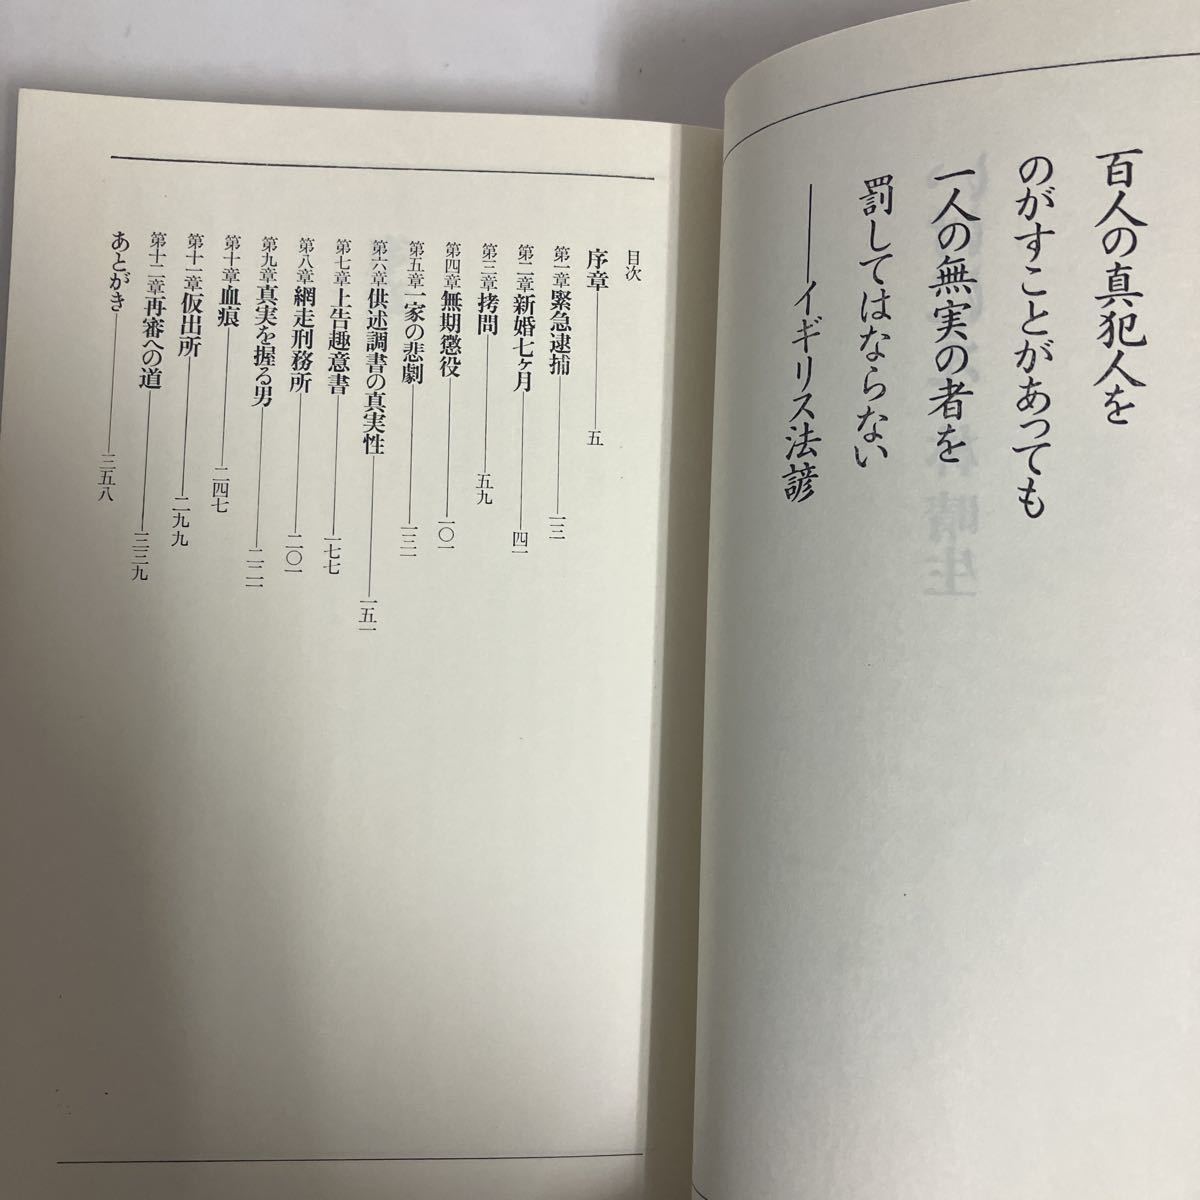 百人の真犯人を
のがすことがあっても
一人の無実の者を
罰してはならない
――イギリス法諺
目次
序章――五
第一章 緊急逮捕――一三
第二章 新婚七ヶ月――四一
第三章 拷問――五九
第四章 無期懲役――一〇一
第五章 一家の悲劇――一三一
第六章 供述調書の真実性――一五一
第七章 上告趣意書――一七七
第八章 網走刑務所――二〇一
第九章 真実を握る男――二二一
第十章 血痕――二四七
第十一章 仮出所――二九九
第十二章 再審への道――三三九
あとがき――三五八